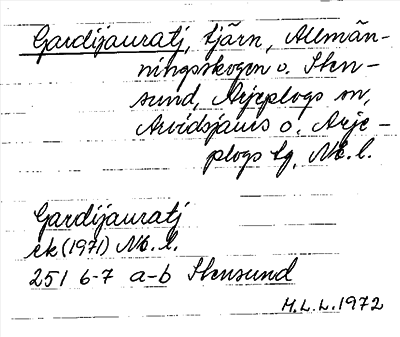 Gardijauratj, tjärn, Allmän-
ningsskogen o. Sten-
sund, Arjeplogs sn,
Arvidsjaurs o. Arje-
plogs tg, Nb. l.
Gardijauratj
ek (1971) Nb. l.
251 6-7 a-b Stensund
H.L.L. 1972